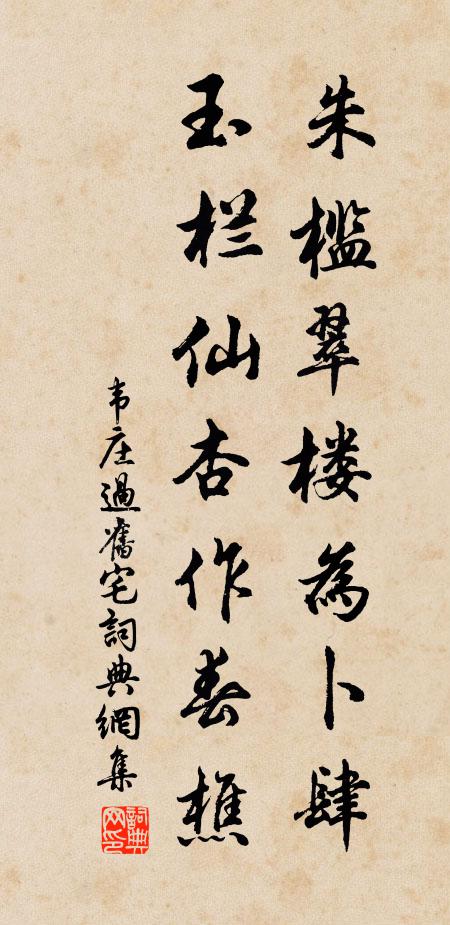 朱槛翠楼為卜肆
玉栏仙杏作春樵
韦庄過舊宅詞典網集
詞典网印